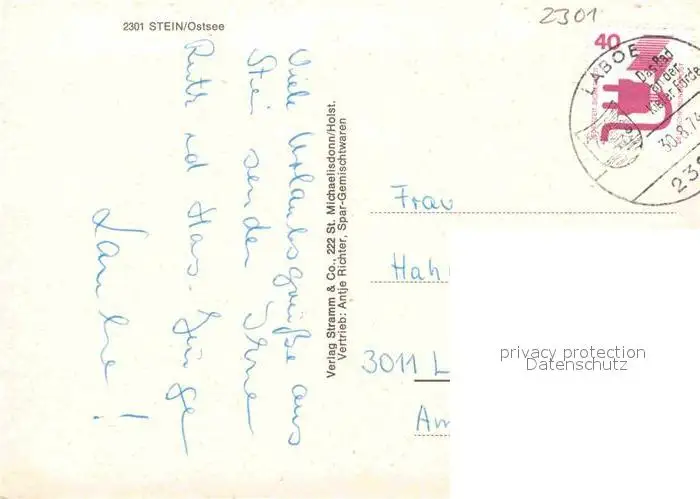 2301 STEIN/Ostsee
2301
40
LABOE
Das Bad
an der
Kieler Förde
30.8.74
23
Viele Urlaubsgrüße aus
Stein senden Ihnen
Ruth und Hans-Jürgen
Verlag Stramm & Co., 222 St. Michaelisdonn/Holst.
Vertrieb: Antje Richter, Spar-Gemischtwaren
Frau
Hah
3011 L
Am
privacy protection
Datenschutz